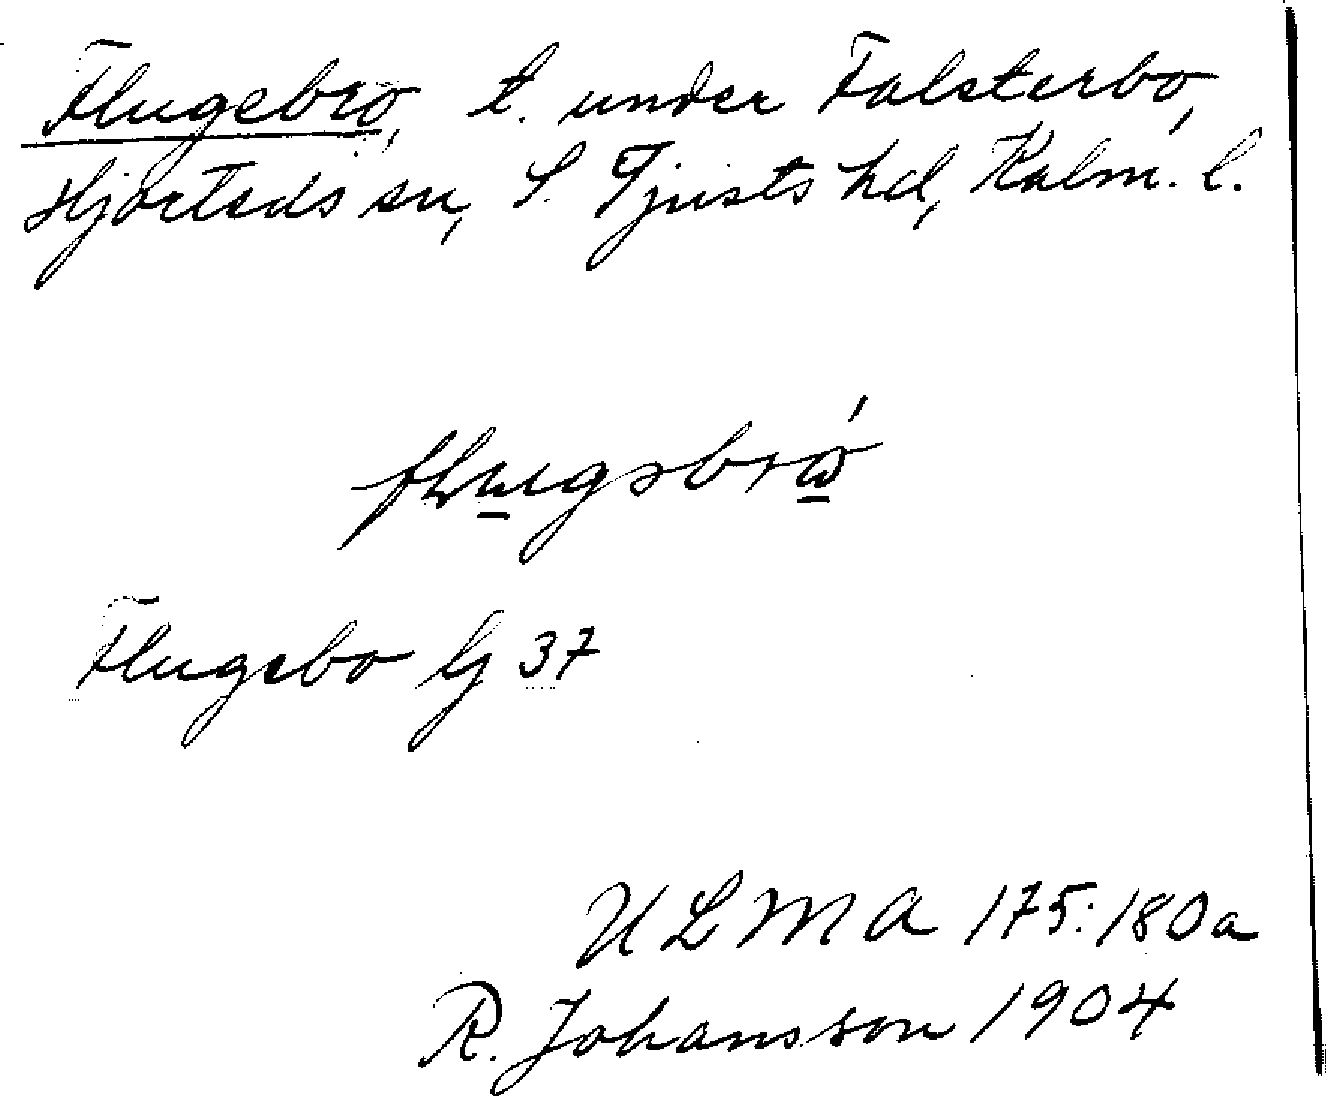 Flugebro, t. under Falsterbo,
Hjorteds sn, S. Tjusts hd, Kalm. l.
Flugebo Gj 37
ULMA 175:180a
R. Johansson 1904